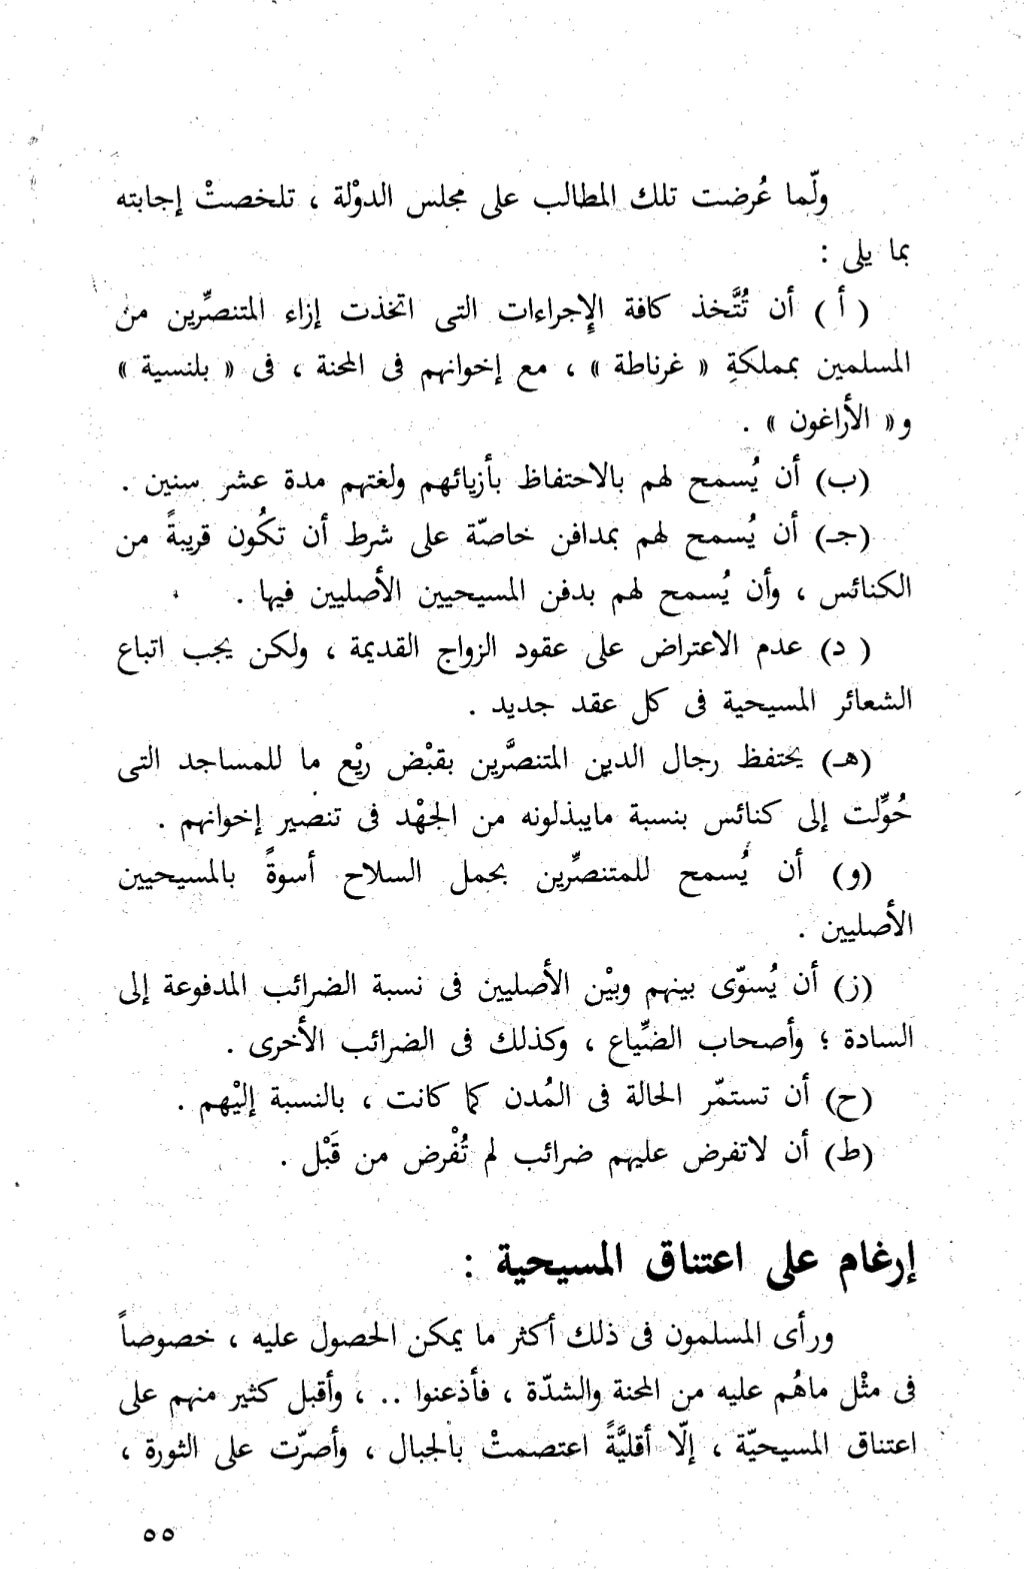 ولّما عُرضت تلك المطالب على مجلس الدوْلة ، تلخصتْ إجابته
بما يلى :
( أ ) أن تُتَّخذ كافة الإجراءات التى اتخذت إزاء المتنصِّرين من
المسلمين بمملكةِ « غرناطة » ، مع إخوانهم فى المحنة ، فى « بلنسية »
و« الأراغون » .
(ب) أن يُسمح لهم بالاحتفاظ بأزيائهم ولغتهم مدة عشر سنين .
(جـ) أن يُسمح لهم بمدافن خاصّة على شرط أن تكُون قريبةً من
الكنائس ، وأن يُسمح لهم بدفن المسيحيين الأصليين فيها .
( د) عدم الاعتراض على عقود الزواج القديمة ، ولكن يجب اتباع
الشعائر المسيحية فى كل عقد جديد .
(هـ) يحتفظ رجال الدين المتنصَّرين بقبْض ريْع ما للمساجد التى
حُوِّلت إلى كنائس بنسبة مايبذلونه من الجهْد فى تنصير إخوانهم .
(و) أن يُسمح للمتنصِّرين بحمل السلاح أسوةً بالمسيحيين
الأصليين .
(ز) أن يُسوّى بينهم وبيْن الأصليين فى نسبة الضرائب المدفوعة إلى
السادة ؛ وأصحاب الضِّياع ، وكذلك فى الضرائب الأخرى .
(ح) أن تستمّر الحالة فى المُدن كما كانت ، بالنسبة إليْهم .
(ط) أن لاتفرض عليهم ضرائب لم تُفْرض من قَبْل .
إرغام على اعتناق المسيحية :
ورأى المسلمون فى ذلك أكثر ما يمكن الحصول عليه ، خصوصاً
فى مثْل ماهُم عليه من المحنة والشدّة ، فأذعنوا .. ، وأقبل كثير منهم على
اعتناق المسيحيّة ، إلّا أقليَّةً اعتصمتْ بالجبال ، وأصرّت على الثورة ،
٥٥